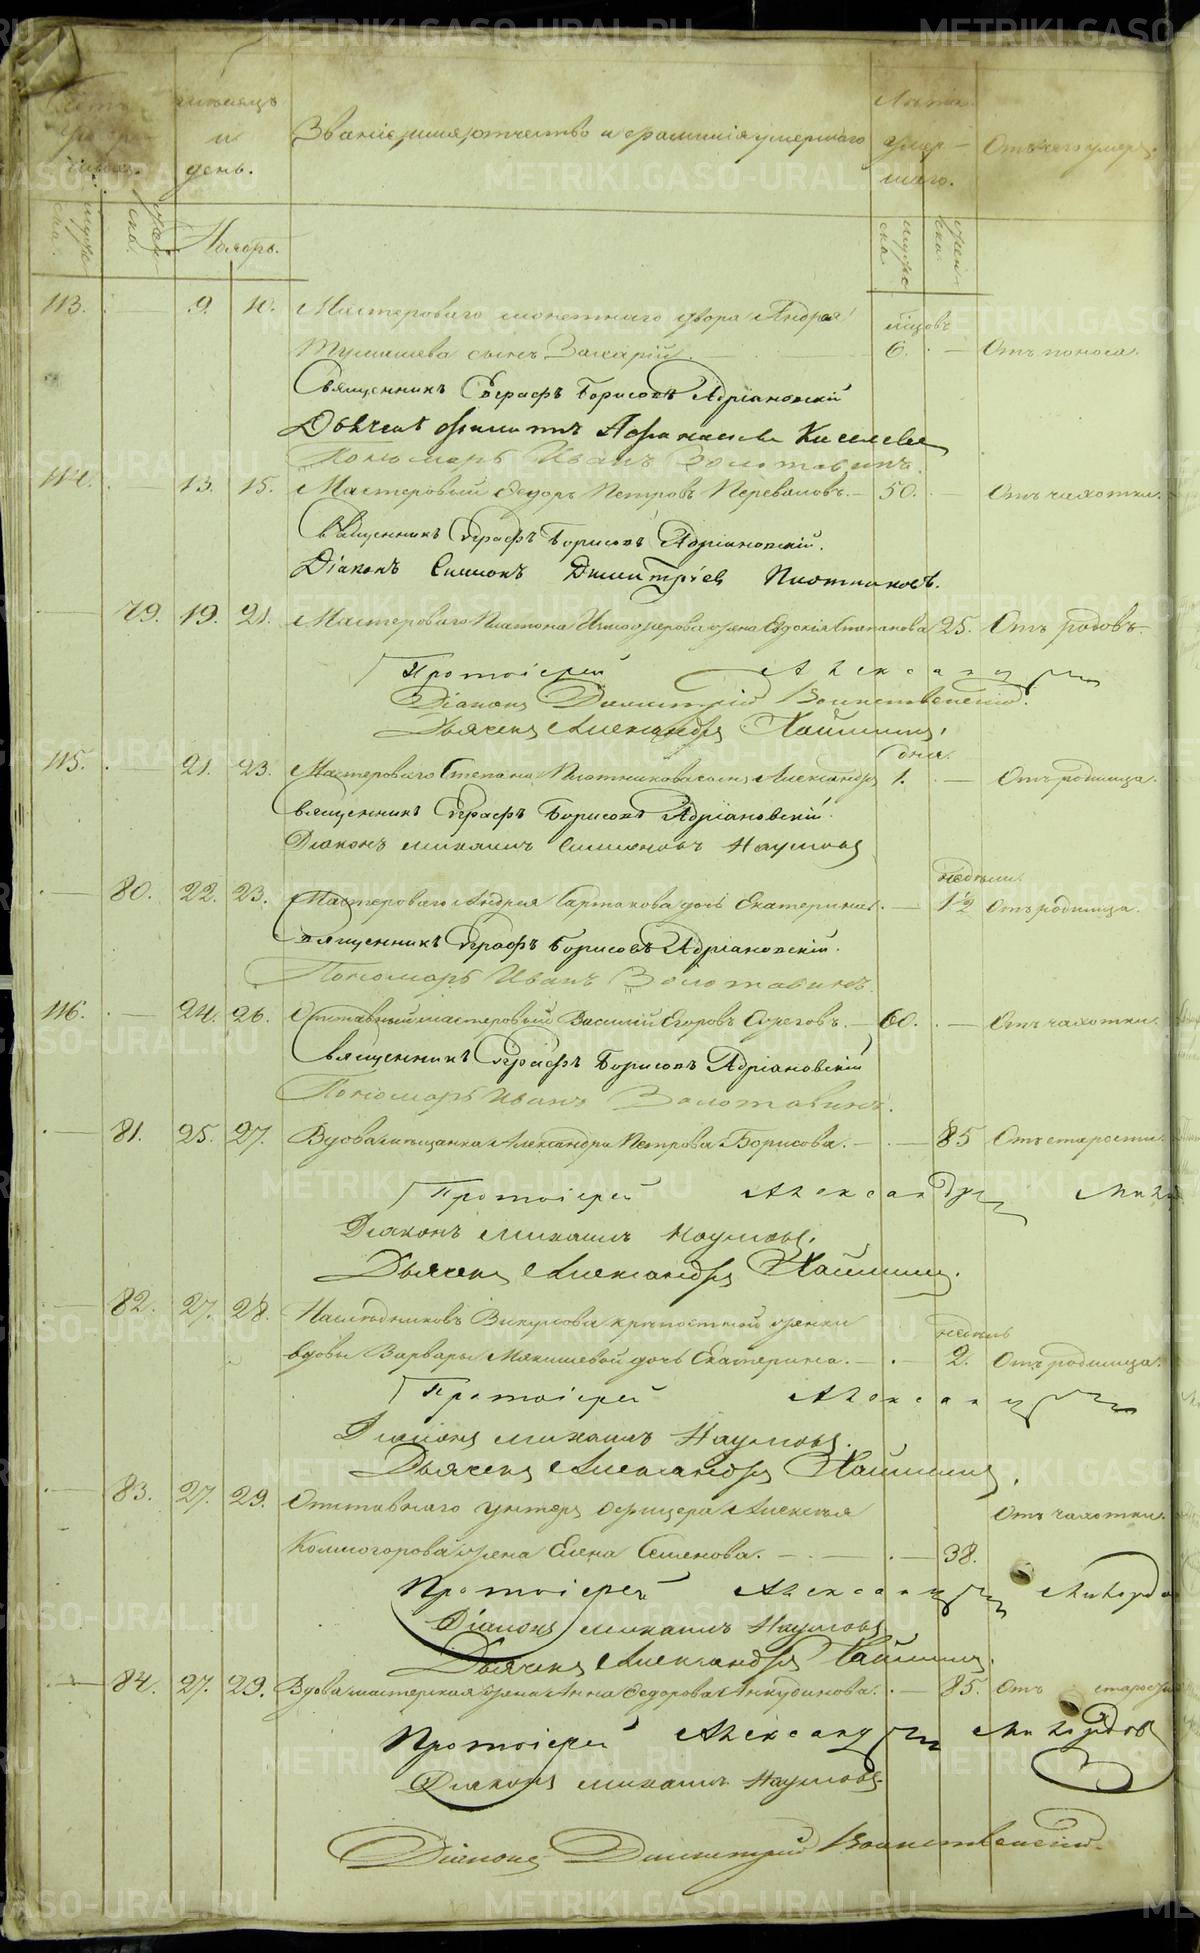 METRIKI.GASO-URAL.RU
Счетъ умершихъ.
мѣсяцъ и день.
Званіе, имя, отчество и фамилія умершаго
Лѣта умершаго.
Отъ чего умеръ.
мужеска. женска. Ноябрь. мужеска. женска.
113. — 9. 10. Мастероваго монетнаго двора Андрея
Тумашева сынъ Захарій. — мѣсяцовъ 6. — Отъ поноса.
Священникъ Евграфъ Борисовъ Адріановскій
Дьячекъ Филиппъ Афанасьевъ Киселевъ
Пономарь Иванъ Золотавинъ.
114. 13. 15. Мастеровый Ѳедоръ Петровъ Переваловъ. — 50. — Отъ чахотки.
Священникъ Евграфъ Борисовъ Адріановскій.
Діаконъ Симеонъ Димитріевъ Плотниковъ.
— 79. 19. 21. Мастероваго Платона жена Евдокія Степанова 25. Отъ родовъ.
Протоіерей Александръ
Діаконъ Димитрій Воинственскій.
Дьячекъ Александръ
115. — 21. 23. Мастероваго Степана Плотникова сынъ Александръ дня. 1. — Отъ родимца.
Священникъ Евграфъ Борисовъ Адріановскій.
Діаконъ Михаилъ Симеоновъ Наумовъ
— 80. 22. 23. Мастероваго Андрея Сартакова дочь Екатерина. — недѣли 1½ Отъ родимца.
Священникъ Евграфъ Борисовъ Адріановскій.
Пономарь Иванъ Золотавинъ.
116. — 24. 26. Отставный мастеровый Василій Егоровъ — 60. — Отъ чахотки.
Священникъ Евграфъ Борисовъ Адріановскій
Пономарь Иванъ Золотавинъ.
— 81. 25. 27. Вдова мѣщанка Александра Петрова Борисова. — 85 Отъ старости.
Протоіерей Александръ
Діаконъ Михаилъ Наумовъ.
Дьячекъ Александръ
— 82. 27. 28. Наслѣдниковъ Викулова крѣпостной женки
вдовы Варвары Мякишевой дочь Екатерина. — недѣль 2. Отъ родимца.
Протоіерей Александръ
Діаконъ Михаилъ Наумовъ.
Дьячекъ Александръ
— 83. 27. 29. Отставнаго унтеръ офицера Алексѣя Отъ чахотки.
Коллогорова жена Елена Семенова. — 38.
Протоіерей Александръ
Діаконъ Михаилъ Наумовъ
Дьячекъ Александръ
— 84. 27. 29. Вдова мастерская жена Анна Ѳедорова Анкудинова. — 85. Отъ старости
Протоіерей Александръ
Діаконъ Михаилъ Наумовъ.
Діаконъ Димитрій Воинственскій.